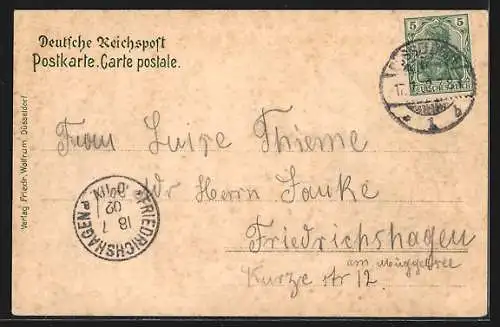 Deutsche Reichspost
Postkarte. Carte postale.
5
Verlag Friedr. Wolfrum Düsseldorf
Frau Luise Thieme
Herrn Janke
Friedrichshagen
am Müggelsee
Kurze str 12.
FRIEDRICHSHAGEN
18 7
02